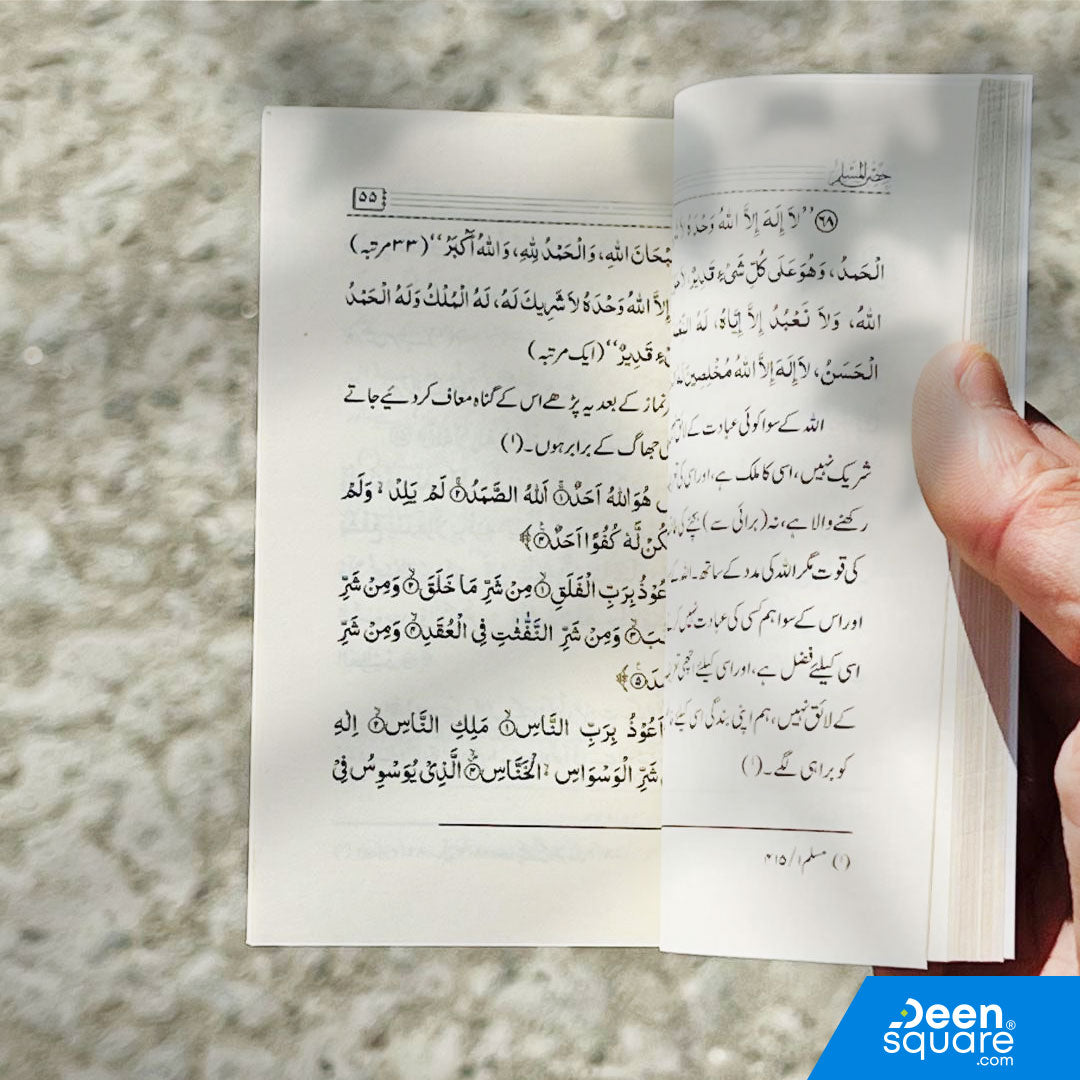 حصن المسلم
(۶۸) ’’لاَ إِلَهَ إِلاَّ اللهُ وَحْدَهُ
الْحَمدُ، وَهُوَ عَلَى كُلِّ شَيْءٍ قَدِيرٌ،
اللهُ، وَلاَ نَعْبُدُ إِلاَّ إِيَّاهُ، لَهُ
الْحَسَنُ، لاَ إِلَهَ إِلاَّ اللهُ مُخْلِصِينَ
اللہ کے سوا کوئی عبادت کے
شریک نہیں، اسی کا ملک ہے، اور اسی کی
رکھنے والا ہے، نہ (برائی سے) بچنے کی
کی قوت مگر اللہ کی مدد کے ساتھ۔
اور اس کے سوا ہم کسی کی عبادت نہیں
اسی کیلئے فضل ہے، اور اسی کیلئے اچھی
کے لائق نہیں، ہم اپنی بندگی اسی کیلئے
کو برا ہی لگے۔(۱)
(۱) مسلم ۱/ ۴۱۵
۵۵
اللهِ، وَالْحَمْدُ لِلهِ، وَاللهُ أَكْبَرُ‘‘ (۳۳ مرتبہ)
إِلاَّ اللهُ وَحْدَهُ لاَ شَرِيكَ لَهُ، لَهُ الْمُلْكُ وَلَهُ الْحَمْدُ
قَدِيرٌ‘‘ (ایک مرتبہ)
نماز کے بعد یہ پڑھے اس کے گناہ معاف کر دئیے جاتے
جھاگ کے برابر ہوں۔(۱)
هُوَ اللهُ اَحَدٌ ۱ اَللهُ الصَّمَدُ ۲ لَمْ يَلِدْ وَلَمْ
لَّهٗ كُفُوًا اَحَدٌ ۴﴾
بِرَبِّ الْفَلَقِ ۱ مِنْ شَرِّ مَا خَلَقَ ۲ وَمِنْ شَرِّ
۳ وَمِنْ شَرِّ النَّفّٰثٰتِ فِي الْعُقَدِ ۴ وَمِنْ شَرِّ
۵﴾
اَعُوْذُ بِرَبِّ النَّاسِ ۱ مَلِكِ النَّاسِ ۲ اِلٰهِ
شَرِّ الْوَسْوَاسِ الْخَنَّاسِ ۴ الَّذِيْ يُوَسْوِسُ فِيْ
Deen
square®
.com